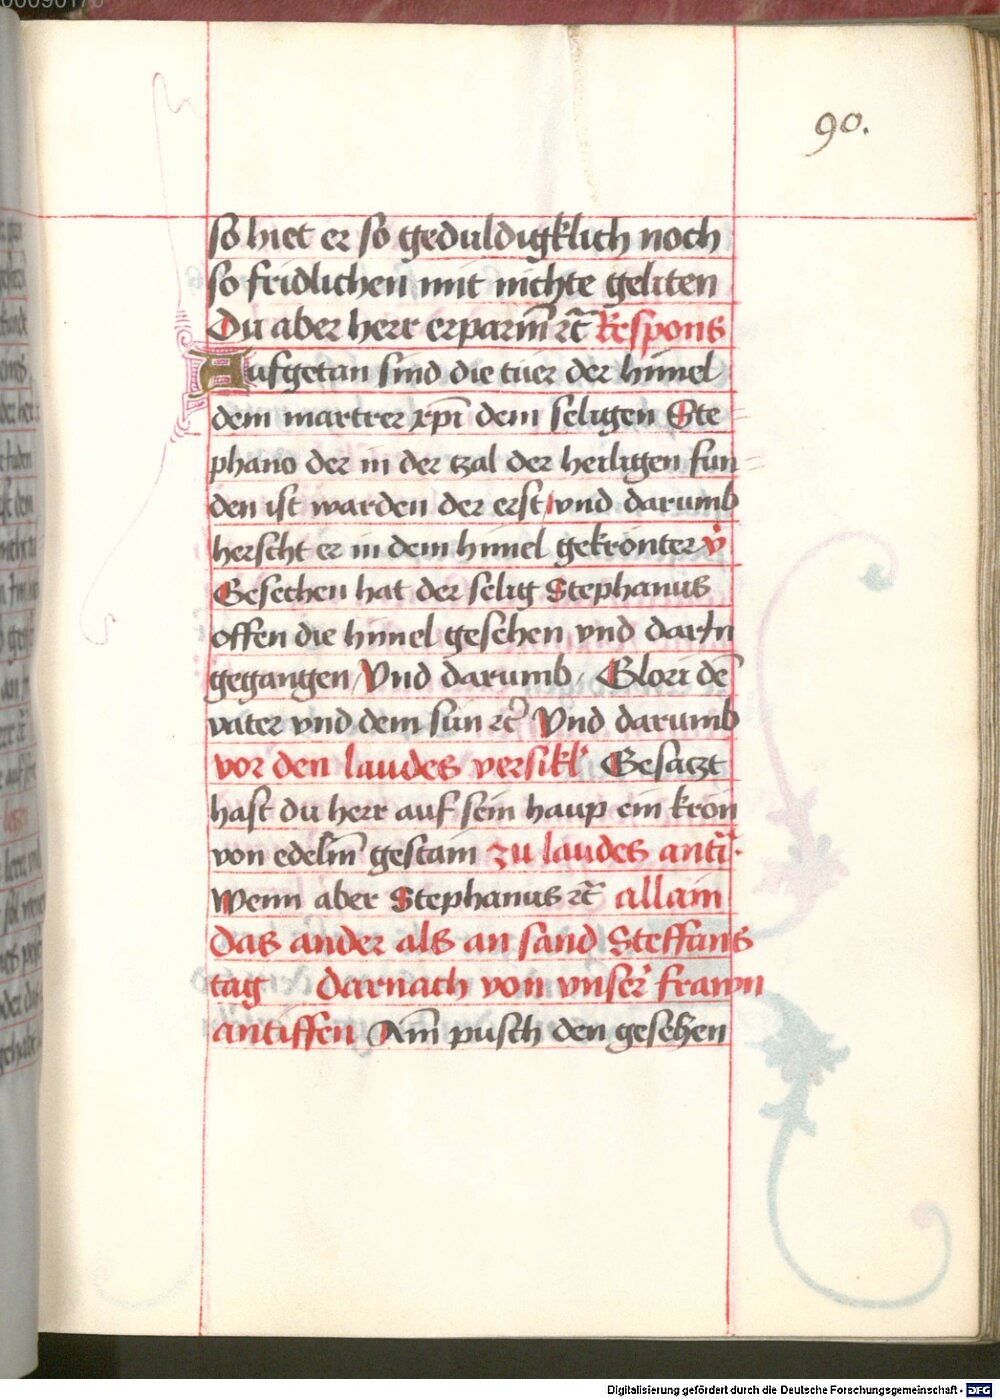 90.
so hiet er so geduldigklich noch
so fridlichen mit nichte geliten
Du aber herr erparm̄ ꝛc̄ Respons
Aufgetan sind die tüer der himel
dem martrer xp̄i dem seligen Ste
phano der in der tzal der heiligen fun
den ist warden der erst / vnd darumb
herscht er in dem himel gekrönter v̇
Gesechen hat der selig Stephanus
offen die himel gesehen vnd darin
gegangen / Vnd darumb / Glori dē
vater vnd dem sun ꝛc̄ Vnd darumb
vor den laudes versikl' Gesaczt
hast du herr auf sein haup ein kron
von edelm̄ gestain zu laudes anti͂.
Wenn aber Stephanus ꝛc̄ allain
das ander als an sand Steffans
tag darnach von vnser̄ frawn
antiffen Am̄ pusch den gesehen
Digitalisierung gefördert durch die Deutsche Forschungsgemeinschaft - DFG